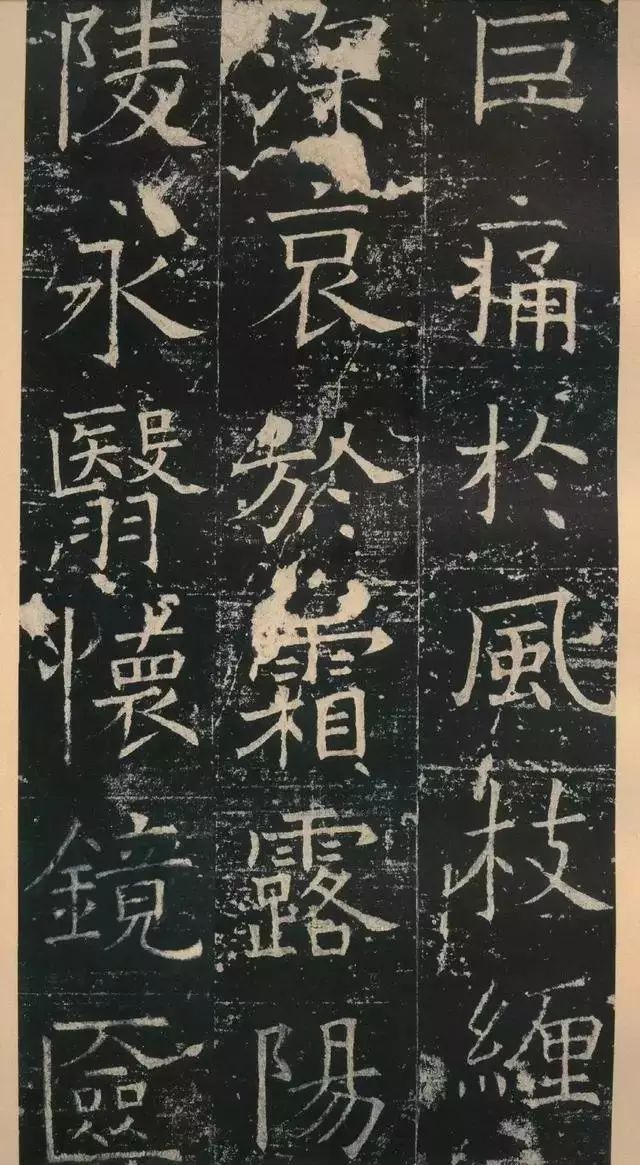 巨痛於風枝纏
深哀於霜露陽
陵永翳懷鏡匳